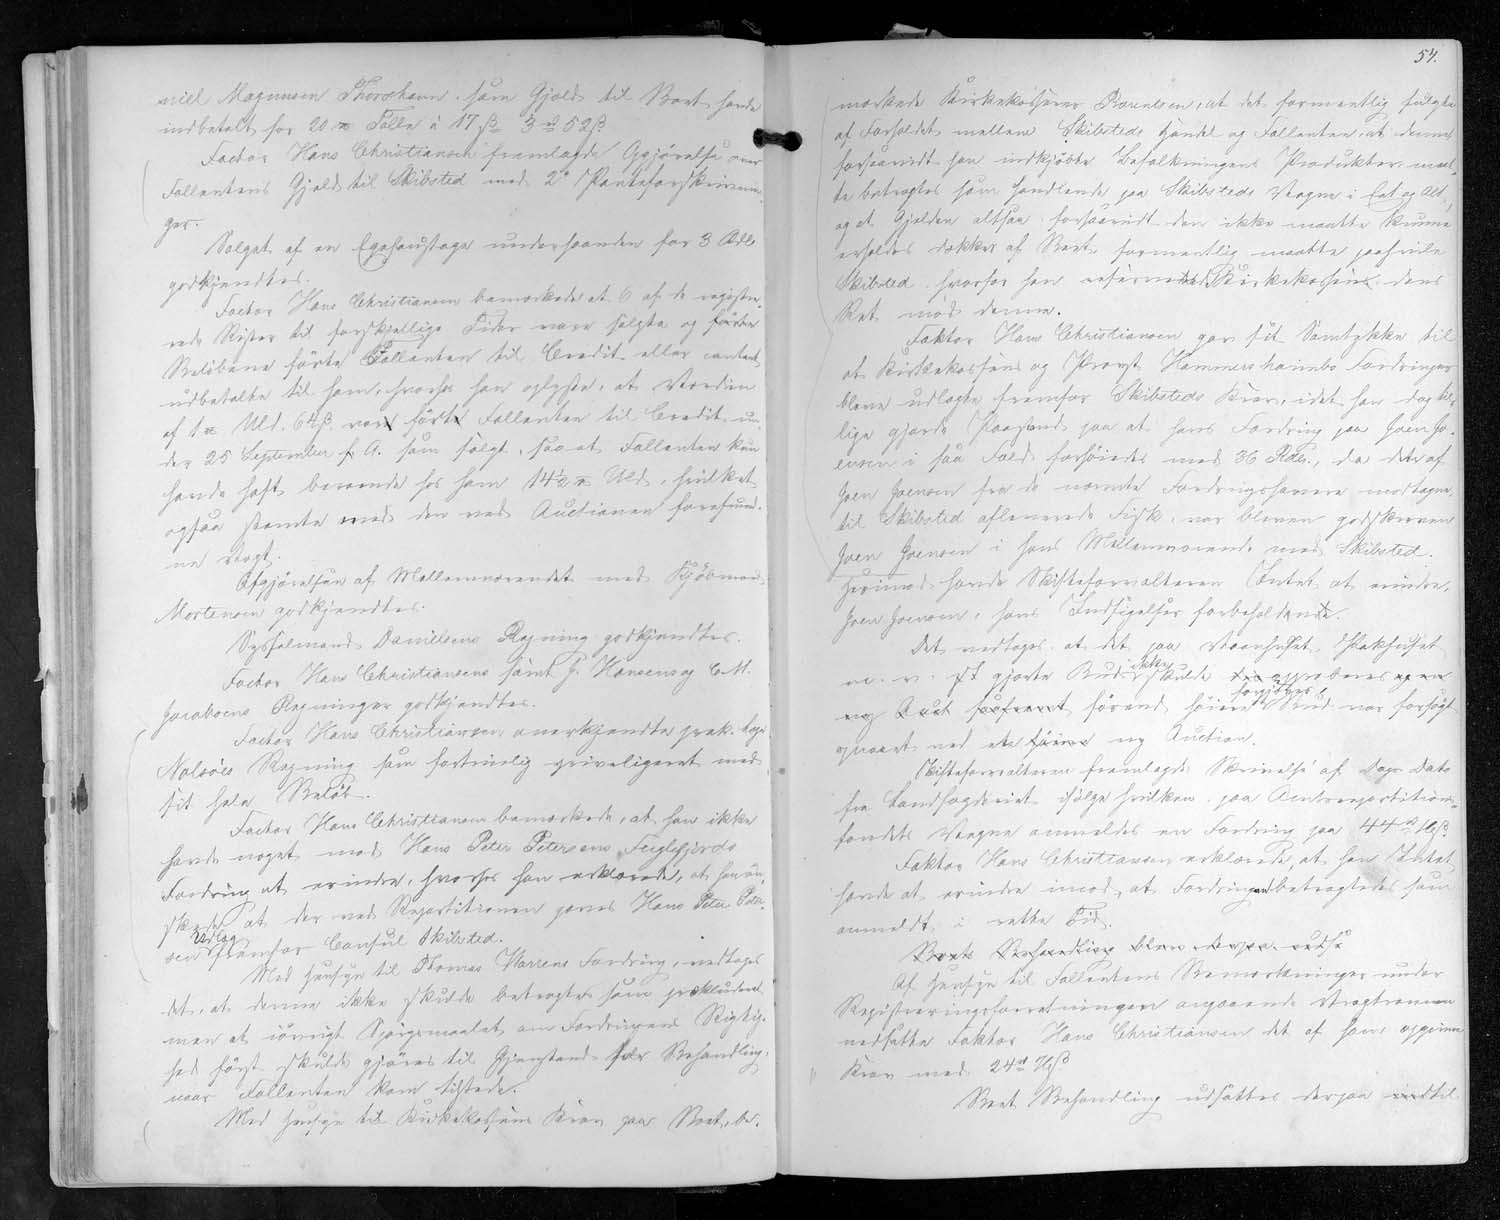 niel Magnusen Thorshavn som Gjæld til Boet havde
indbetalt for 20 Tolle à 17 ß 3 52 ß
Factor Hans Christiansen fremlagde Opgjørelse over
Fallentens Gjæld til Skibsted med 2 Panteforskrivnin-
ger.
Salget af en Egefoustage underhaanden for 3 Rdl.
godkjendtes.
Factor Hans Christiansen bemærkede at 6 af de registre-
rede til forskjellige Tider vare solgte og
Beløbene førte Fallenten til Credit eller contant
udbetalte til ham, hvorhos han oplyste, at Værdien
af Uld 64 ß var ført Fallenten til Credit un-
der 25 September f. A. som solgt, saa at Fallenten kun
havde havt beroende hos ham 14½ Uld, hvilket
ogsaa stemte med den ved Auctionen forefund-
ne Vægt.
Afgjørelsen af Mellemværendet med Kjøbmand
Mortensen godkjendtes.
Sysselmand Danielsens Regning godkjendtes.
Factor Hans Christiansens samt J. Hansens og C. M.
Jacobsens Regninger godkjendtes.
Factor Hans Christiansen anerkjendte prak. Læge
Nolsøes Regning som fortrinlig priviligeret med
sit hele Beløb.
Factor Hans Christiansen bemærkede, at han ikke
havde noget mod Hans Peter Petersens Fuglefjords
Fordring at erindre, hvorhos han erklærede, at han øn-
skede at der ved Repartitionen gaves Hans Peter Peter-
sen Udlæg fremfor Consul Skibsted.
Med Hensyn til Thomas Warrens Fordring, vedtoges
det, at denne ikke skulde betragtes som prækluderet
men at iøvrigt Spørgsmaalet om Fordringens Rigtig-
hed først skulde gjøres til Gjenstand for Behandling,
naar Fallenten kom tilstede.
Med Hensyn til Kirkekassens Krav paa Boet, be-
54.
mærkede Kirkekasserer Poulsen, at det formentlig fulgte
af Forholdet mellem Skibsteds Handel og Fallenten, at denne
forsaavidt han indkjøbte Befolkningens Produkter maat-
te betragtes som handlende paa Skibsteds Vegne i Eet og Alt,
og at Gjælden altsaa forsaavidt den ikke maatte kunne
erholdes dækket af Boet formentlig maatte paahvile
Skibsted, hvorfor han reserverede Kirkekassen dens
Ret mod denne.
Faktor Hans Christiansen gav sit Samtykke til
at Kirkekassens og Provst Hammershaimbs Fordringer
bleve udlagte fremfor Skibsteds Krav, idet han dog til-
lige gjorde Paastand paa at hans Fordring paa Joen Jo-
ensen i saa Fald forhøiedes med 36 Rdl., da det af
Joen Joensen fra de nævnte Fordringshavere modtagne,
til Skibsted afleverede Fisk, var bleven godskreven
Joen Joensen i hans Mellemværende med Skibsted.
Herimod havde Skifteforvalteren Intet at erindre,
Joen Joensens, hans Indsigelser forbeholdende.
Det vedtoges at det paa Vaanhuset, Pakhuset
m. v. gjorte Bud ikke skulde approberes
førend høiere Bud var forsøgt
opnaaet ved ny Auction.
Skifteforvalteren fremlagde Skrivelse af Dags Dato
fra Landfogderiet ifølge hvilken paa Amtsrepartitions-
fondets Vegne anmeldes en Fordring paa 44
Faktor Hans Christiansen erklærede, at han Intet
havde at erindre imod at Fordringen betragtedes som
anmeldt i rette Tid.
Boets Behandling blev derpaa udsat
Af Hensyn til Fallentens Bemærkninger under
Registreringsforretningen angaaende
nedsatte Faktor Hans Christiansen det af ham opgivne
Krav med 24
Boets Behandling udsattes derpaa indtil